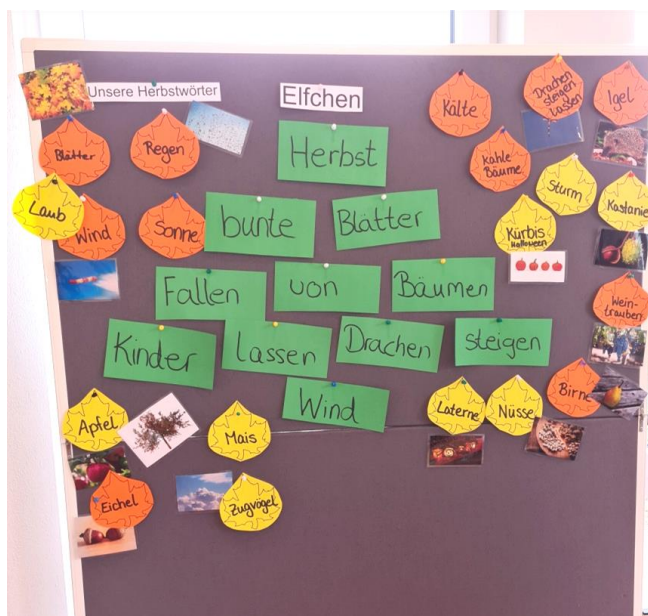 Unsere Herbstwörter
Elfchen
Herbst
bunte Blätter
Fallen von Bäumen
Kinder lassen Drachen steigen
Wind
Blätter
Regen
Laub
Wind
Sonne
Kälte
Drachen
steigen
lassen
Igel
kahle
Bäume
Sturm
Kastanie
Kürbis
Halloween
Wein-
trauben
Birne
Laterne
Nüsse
Apfel
Mais
Eichel
Zugvögel